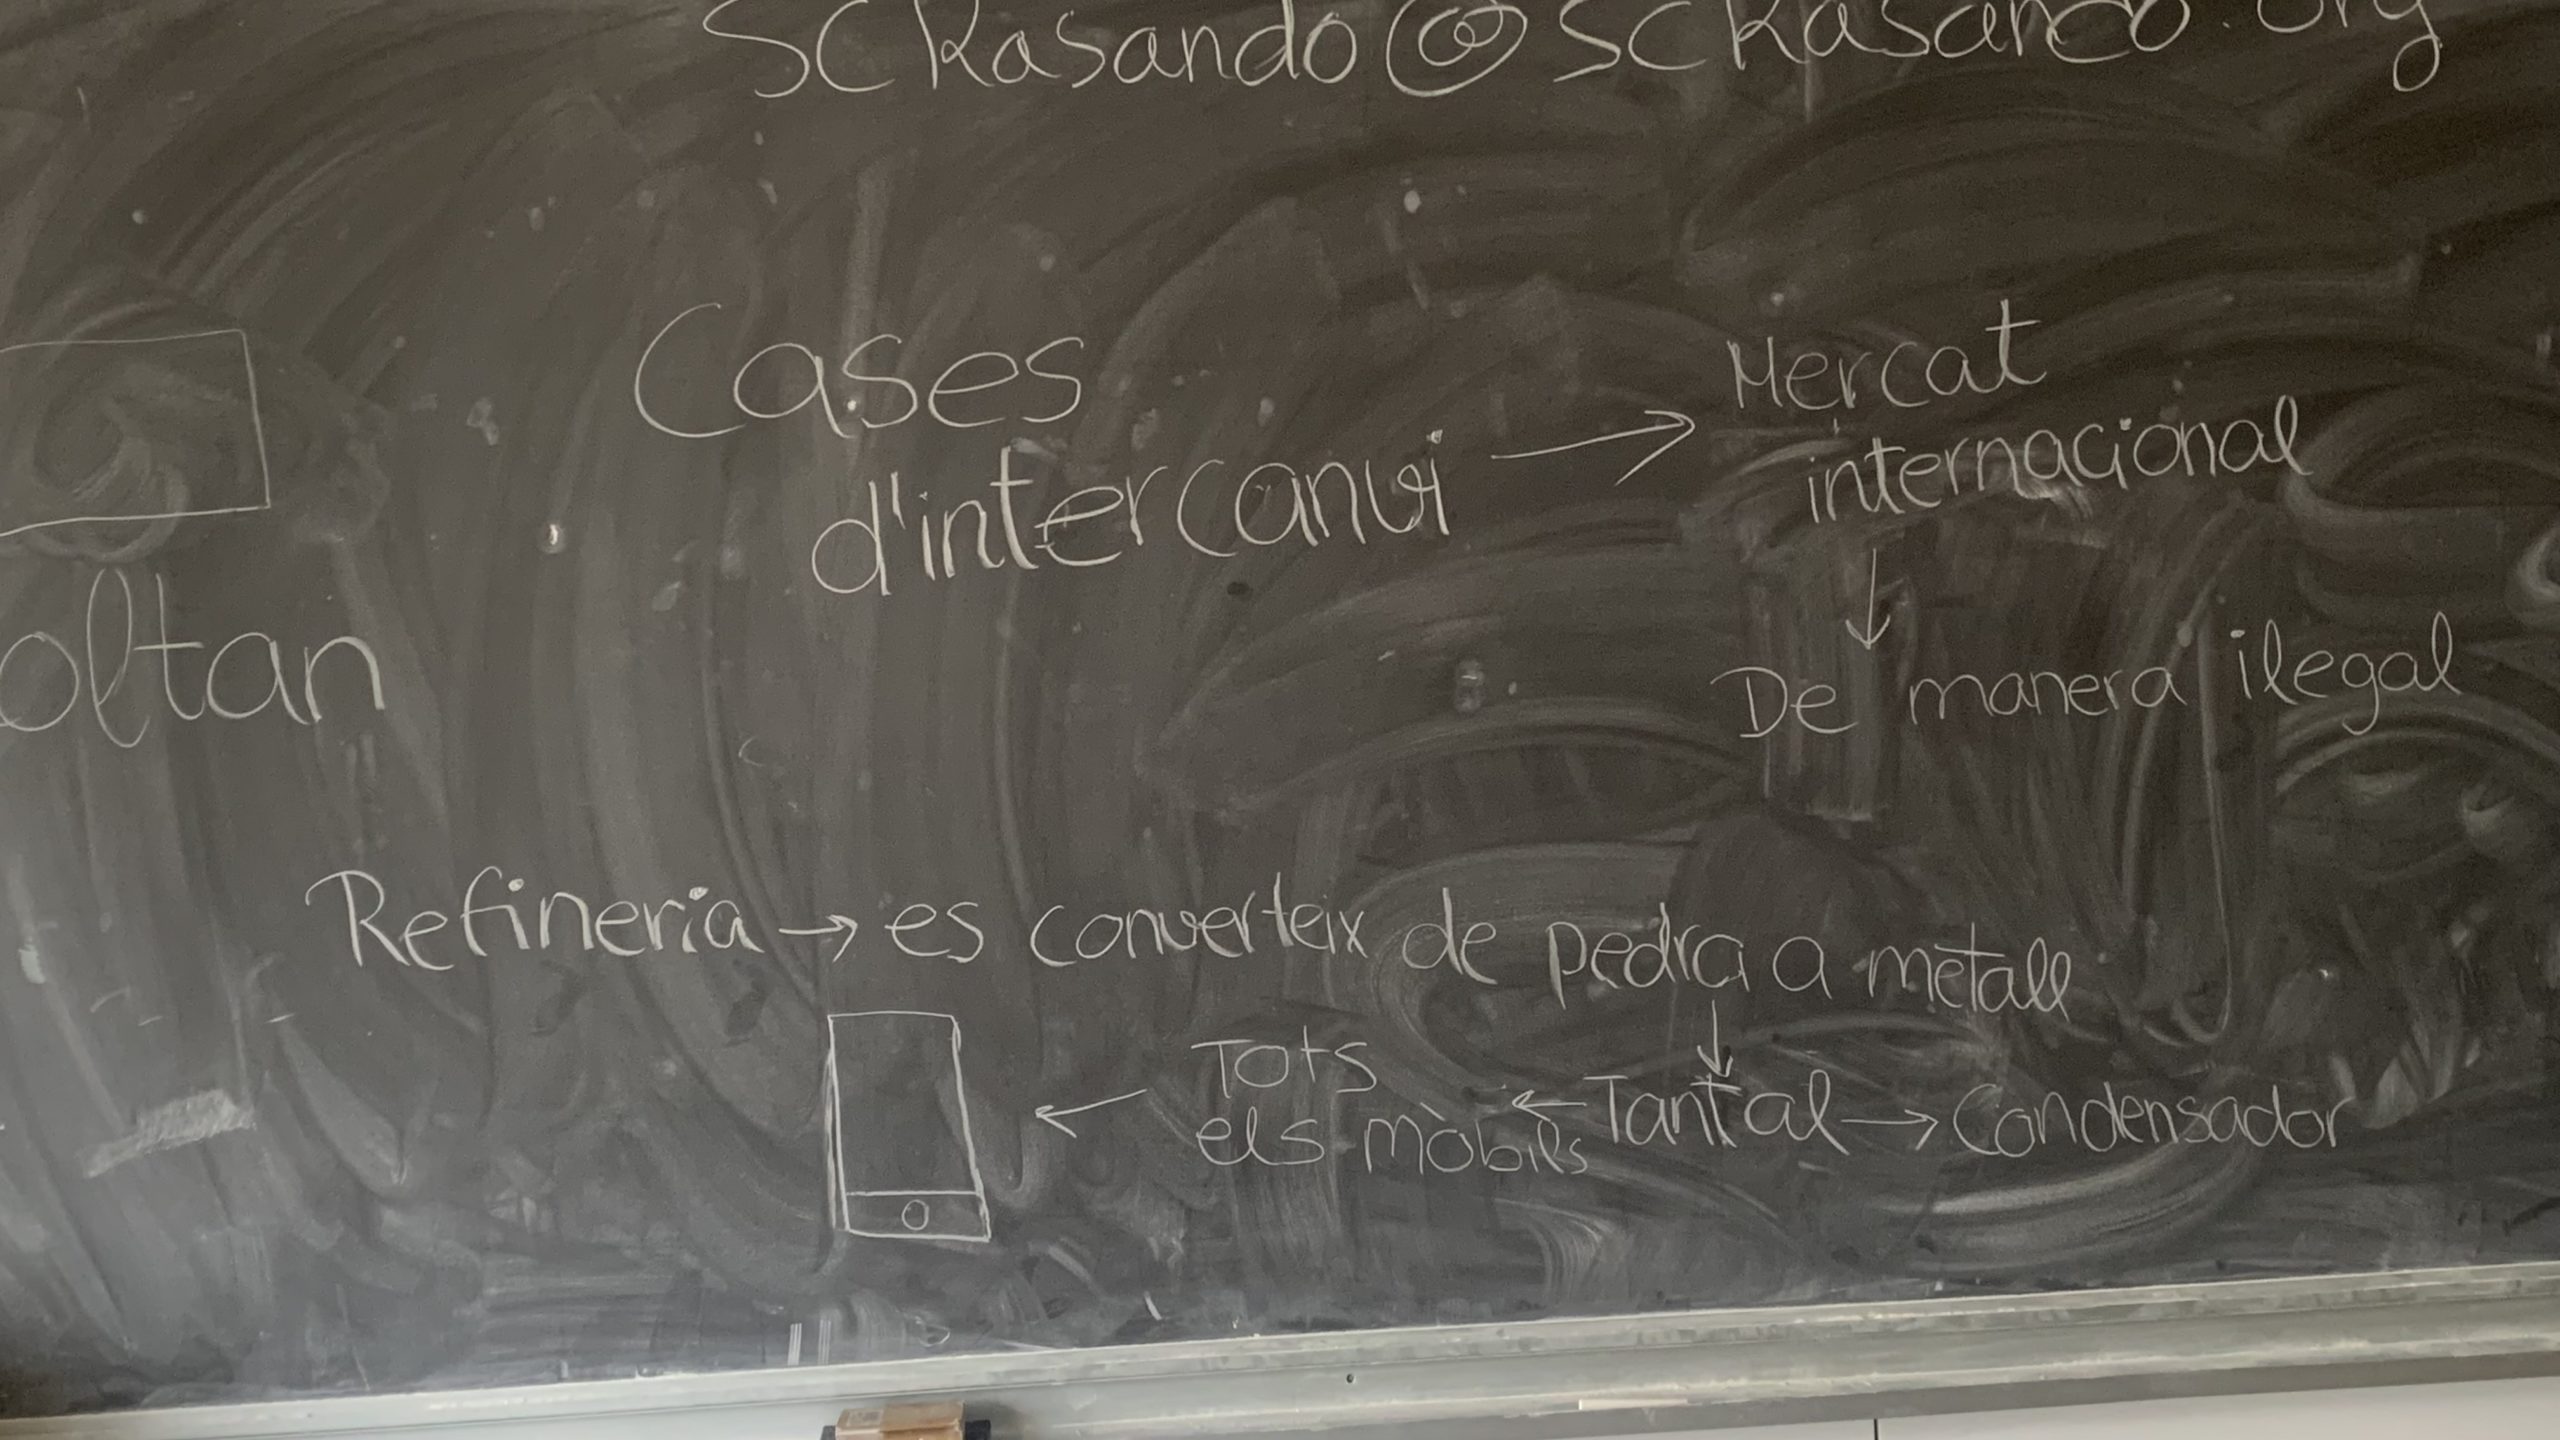 SCKasando@SCKasando.org
Cases
d'intercanvi → Mercat
internacional
↓
De manera ilegal
oltan
Refineria → es converteix de pedra a metall
↓
Tots
els mòbils ← Tantal → Condensador
←